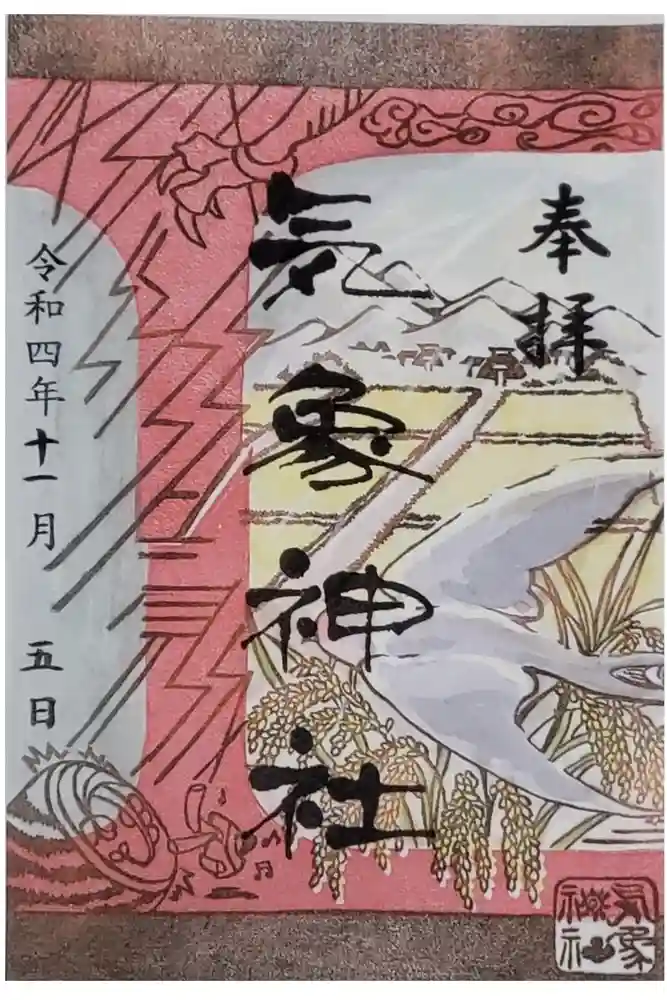 奉拝
気象神社
令和四年十一月 五日
気象
神社